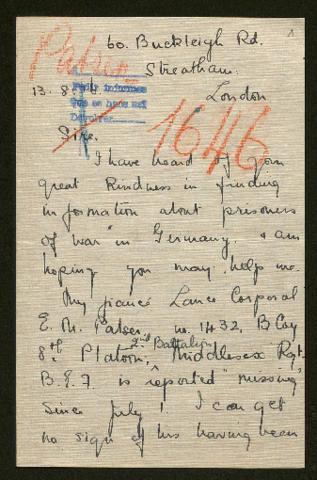 60. Buckleigh Rd.
Streatham.
London
13. 8. 16.
Sire.
1646
I have heard of your
great kindness in finding
information about prisoners
of war in Germany. & am
hoping you may help me.
My fiancé Lance Corporal
E. M. Palser, no. 1432, B Coy
8th Platoon, 2nd Battalion Middlesex Rgt.
B.E.F. is reported "missing"
since July 1. I can get
no sign of his having been